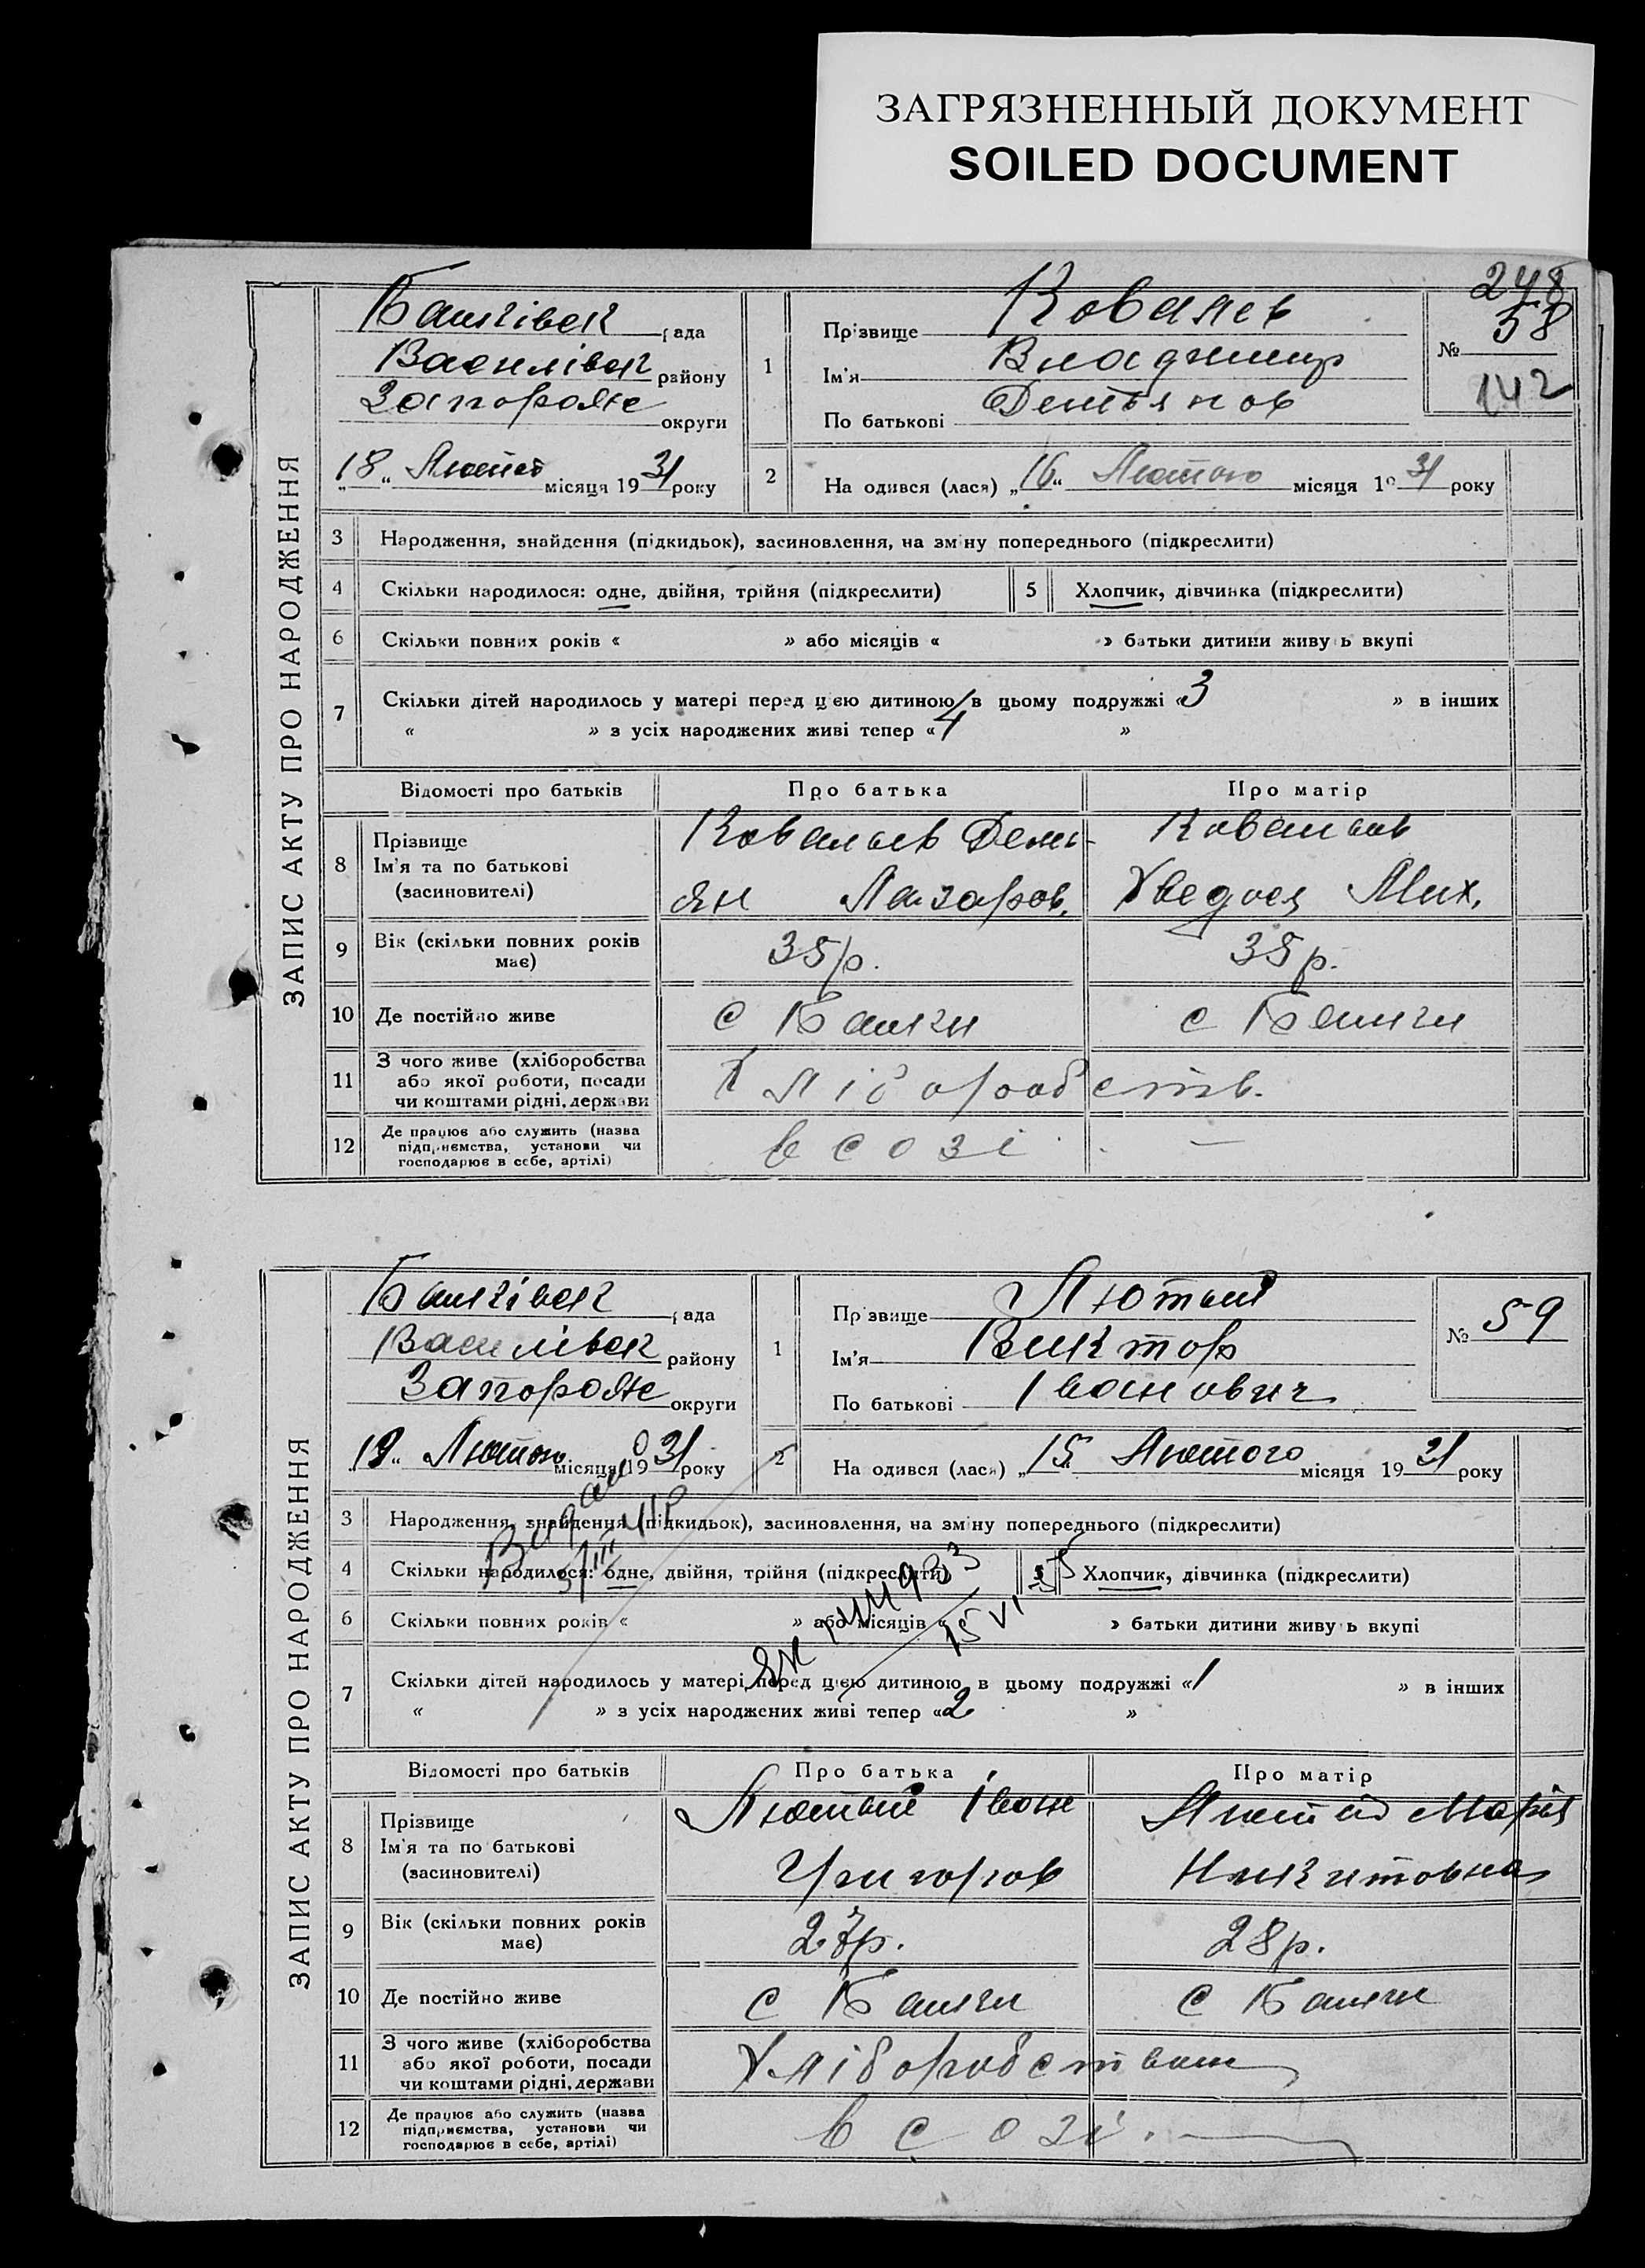 ЗАГРЯЗНЕННЫЙ ДОКУМЕНТ
SOILED DOCUMENT
248
ЗАПИС АКТУ ПРО НАРОДЖЕННЯ
Балківськ рада
Василівськ району
Запорожс округи
„18“ Лютого місяця 1931 року
1 Прізвище Ковалев
Ім'я Владимир
По батькові Демьянов
№ 58
142
2 На одився (лася) „16“ Лютого місяця 1931 року
3 Народження, знайдення (підкидьок), засиновлення, на зміну попереднього (підкреслити)
4 Скільки народилося: одне, двійня, трійня (підкреслити) 5 Хлопчик, дівчинка (підкреслити)
6 Скільки повних років « » або місяців « » батьки дитини живуть вкупі
7 Скільки дітей народилось у матері перед цією дитиною в цьому подружжі «3 » в інших
« » з усіх народжених живі тепер «4 »
Відомості про батьків Про батька Про матір
8 Прізвище
Ім'я та по батькові
(засиновителі)
Ковальов Демь-
ян Лазаров.
Ковальов
Хведося Мих.
9 Вік (скільки повних років
має)
35 р. 35 р.
10 Де постійно живе с Балки с Балки
11 З чого живе (хліборобства
або якої роботи, посади
чи коштами рідні, держави
Хліборобств.
12 Де працює або служить (назва
підприємства, установи чи
господарює в себе, артілі)
в созі —
ЗАПИС АКТУ ПРО НАРОДЖЕННЯ
Балківськ рада
Василівськ району
Запорожс округи
„19“ Лютого місяця 1931 року
1 Прізвище Лютый
Ім'я Виктор
По батькові Іванович
№ 59
2 На одився (лася) „15“ Лютого місяця 1931 року
3 Народження, знайдення (підкидьок), засиновлення, на зміну попереднього (підкреслити)
4 Скільки народилося: одне, двійня, трійня (підкреслити) 5 Хлопчик, дівчинка (підкреслити)
6 Скільки повних років « » або місяців « » батьки дитини живуть вкупі
7 Скільки дітей народилось у матері перед цією дитиною в цьому подружжі «1 » в інших
« » з усіх народжених живі тепер «2 »
Відомості про батьків Про батька Про матір
8 Прізвище
Ім'я та по батькові
(засиновителі)
Лютый Іван
Григоров
Лютий Марія
Никитовна
9 Вік (скільки повних років
має)
27 р. 28 р.
10 Де постійно живе с Балки с Балки
11 З чого живе (хліборобства
або якої роботи, посади
чи коштами рідні, держави
Хліборобством
12 Де працює або служить (назва
підприємства, установи чи
господарює в себе, артілі)
в созі. —